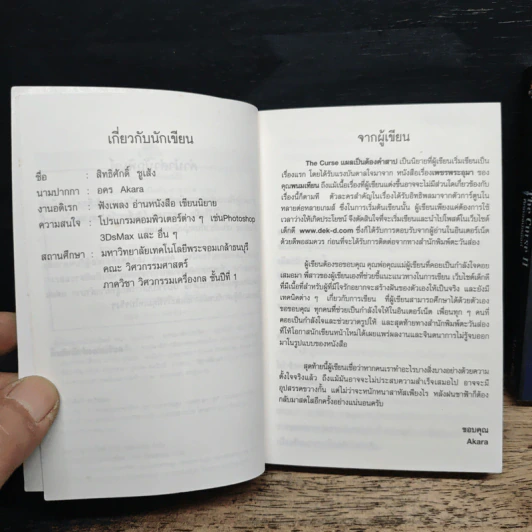 เกี่ยวกับนักเขียน
ชื่อ : สิทธิศักดิ์ ชูเส้ง
นามปากกา : อคร Akara
งานอดิเรก : ฟังเพลง อ่านหนังสือ เขียนนิยาย
ความสนใจ : โปรแกรมคอมพิวเตอร์ต่าง ๆ เช่นPhotoshop
3DsMax และ อื่น ๆ
สถานศึกษา : มหาวิทยาลัยเทคโนโลยีพระจอมเกล้าธนบุรี
คณะ วิศวกรรมศาสตร์
ภาควิชา วิศวกรรมเครื่องกล ชั้นปีที่ 1
จากผู้เขียน
The Curse เป็นนิยายที่ผู้เขียนเริ่มเขียนเป็น
เรื่องแรก โดยได้รับแรงบันดาลใจมาจาก หนังสือเรื่องเพชรพระอุมา ของ
คุณพนมเทียน ถึงแม้เนื้อเรื่องที่ผู้เขียนแต่งขึ้นอาจจะไม่มีส่วนใดเกี่ยวข้องกับ
เรื่องนี้ก็ตามที ตัวละครสำคัญในเรื่องได้รับอิทธิพลมาจากตัวการ์ตูนใน
หลายต่อหลายเกมส์ ซึ่งในการเริ่มต้นเขียนนั้น ผู้เขียนเพียงแค่ต้องการใช้
เวลาว่างให้เกิดประโยชน์ จึงตัดสินใจที่จะเริ่มเขียนและนำไปโพสต์ในเว็บไซต์
เด็กดี www.dek-d.com ซึ่งก็ได้รับการตอบรับจากผู้อ่านในอินเตอร์เน็ต
ด้วยดีพอสมควร ก่อนที่จะได้รับการติดต่อจากทางสำนักพิมพ์ตะวันส่อง
ผู้เขียนต้องขอขอบคุณ คุณพ่อคุณแม่ผู้เขียนที่คอยเป็นกำลังใจคอย
เสมอมา พี่สาวของผู้เขียนเองที่ช่วยชี้แนะแนวทางในการเขียน เว็บไซต์เด็กดี
ที่มีเนื้อที่สำหรับผู้ที่มีใจรักอยากจะสร้างฝันของตัวเองให้เป็นจริง และยังมี
เทคนิคต่าง ๆ เกี่ยวกับการเขียน ที่ผู้เขียนสามารถศึกษาได้ด้วยตัวเอง
ขอขอบคุณ ทุกคนที่ช่วยเป็นกำลังใจให้ในอินเตอร์เน็ต เพื่อนทุก ๆ คนที่
คอยเป็นกำลังใจและช่วยวาดรูปให้ และสุดท้ายทางสำนักพิมพ์ตะวันส่อง
ที่ให้โอกาสนักเขียนหน้าใหม่ได้เผยแพร่ผลงานและจินตนาการไม่รู้จบออก
มาในรูปแบบของหนังสือ
สุดท้ายนี้ผู้เขียนเชื่อว่าหากคนเราทำอะไรบางสิ่งบางอย่างด้วยความ
ตั้งใจจริงแล้ว ถึงแม้มันอาจจะไม่ประสบความสำเร็จเสมอไป อาจจะมี
อุปสรรคขวางกั้น แต่ไม่ว่าจะหนักหนาสาหัสเพียงไร หลังฝนซาฟ้าก็ต้อง
กลับมาสดใสอีกครั้งอย่างแน่นอนครับ
ขอบคุณ
Akara